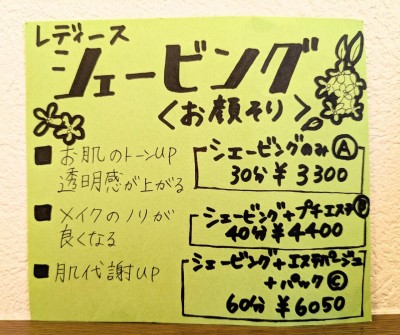 レディース
シェービング
<お顔そり>
■お肌のトーンUP
透明感が上がる
■メイクのノリが
良くなる
■肌代謝UP
シェービングのみ Ⓐ
30分 ¥3300
シェービング+プチエステ Ⓑ
40分 ¥4400
シェービング+エステパージュ
+パック Ⓒ
60分 ¥6050